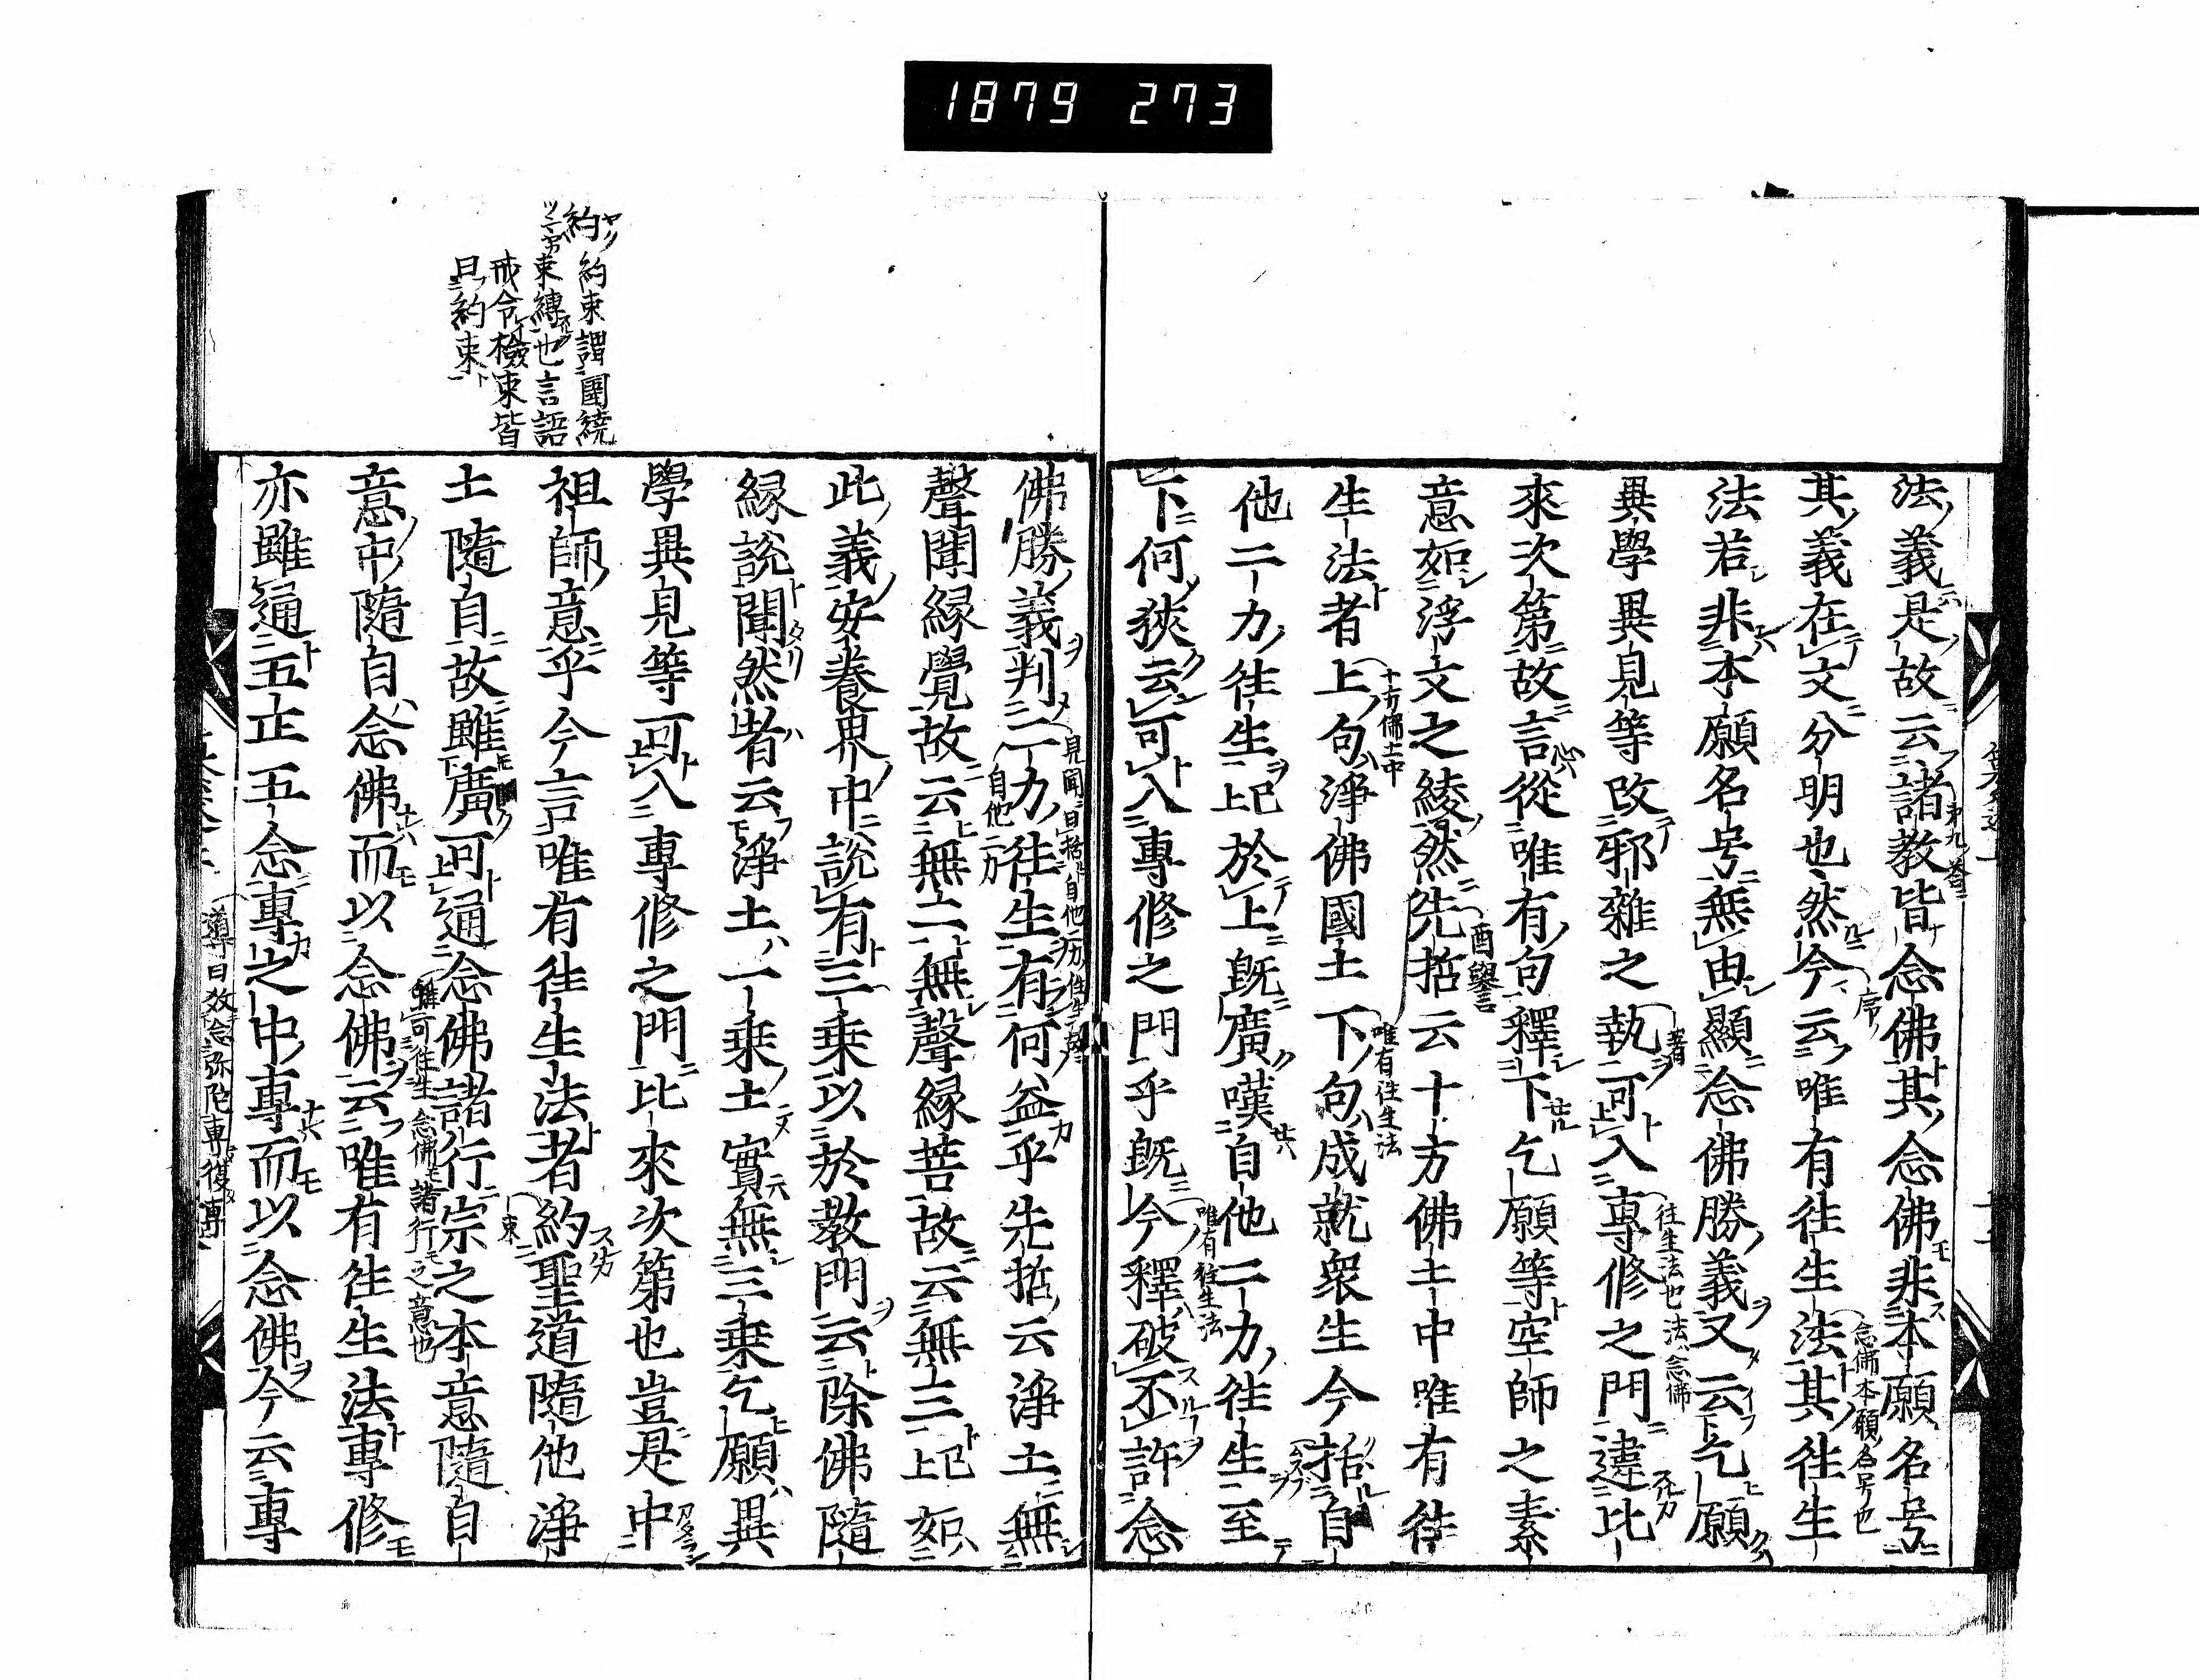 1879 273
法義是故云諸教皆念佛其念佛非本願名号
其義在文分明也然今云唯有往生法其往生
法若非本願名号無由顯念佛勝義又云乞願
異學異見等改邪雜之執可入專修之門違比
來次第故言從唯有句釋下乞願等空師之素
意如浮文之綾然先哲云十方佛土中唯有往
生法者上句淨佛國土下句成就衆生今括自
他二力往生已上於上既廣嘆自他二力往生至
下何狹云可入專修之門乎既今釋破不許念
佛勝義判二力往生有何益乎先哲云淨土無
聲聞縁覺故云無二無聲縁菩故云無三已上如
此義安養界中說有三乗以於教門云除佛隨
縁說聞然者云淨土一乗土實無三乗乞願異
學異見等可入專修之門比來次第也豈是中
祖師意乎今言唯有往生法者約聖道隨他淨
土隨自故雖廣可通念佛諸行宗之本意隨自
意中隨自念佛而以念佛云唯有往生法專修
亦雖通五正五念專之中專而以念佛今云專
約
約束謂圍繞
束縛也言語
戒令檢束皆
曰約束
第九答
序
念佛本願名号也
著
往生法也法念佛
酉譽言
十方佛土中
唯有往生法
唯有往生法
自他二力
束
雖可往生念佛諸行之意也